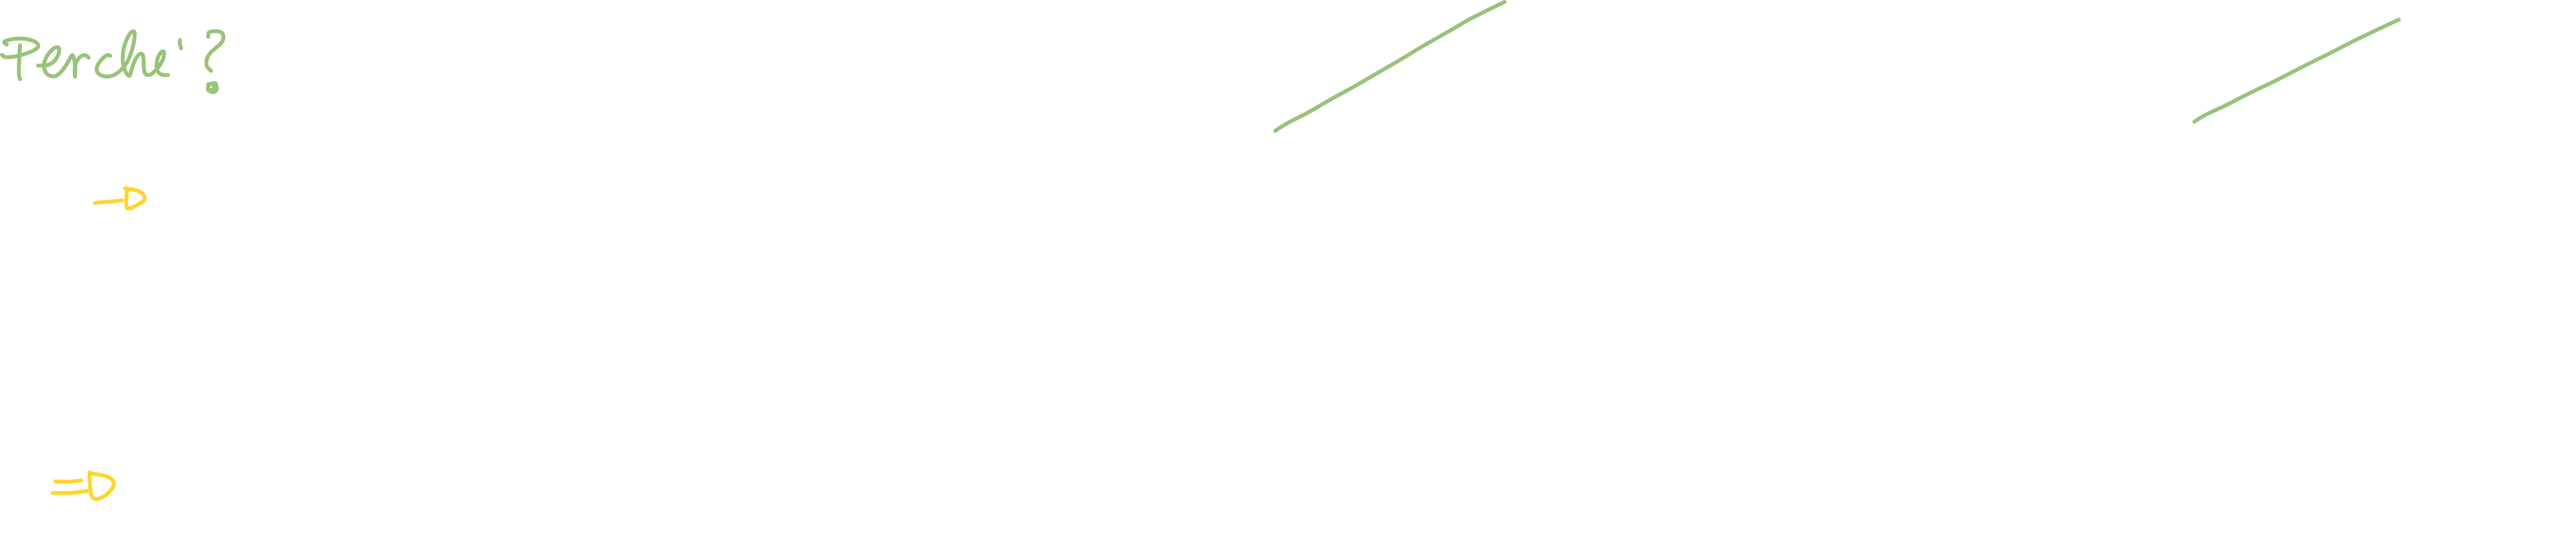 Perche'?
→
⇒